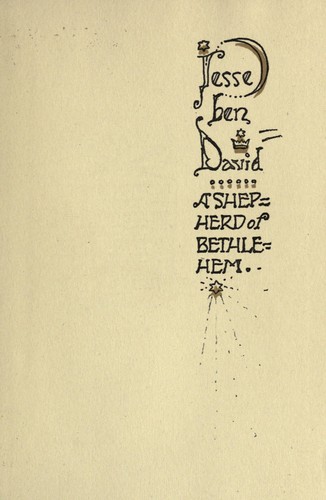 Jesse
ben
David
A SHEP=
HERD of
BETHLE=
HEM..